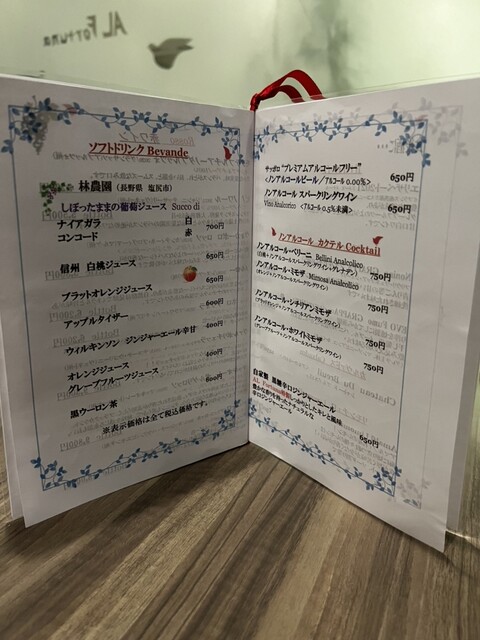 AL Fortuna
ソフトドリンク Bevande
林農園 (長野県 塩尻市)
しぼったままの葡萄ジュース Succo di
ナイアガラ 白 700円
コンコード 赤
信州 白桃ジュース 650円
ブラットオレンジジュース 650円
アップルタイザー 600円
ウィルキンソン ジンジャーエール辛甘 400円
オレンジジュース 400円
グレープフルーツジュース
黒ウーロン茶 600円
※表示価格は全て税込価格です。
サッポロ "プレミアムアルコールフリー" 650円
<ノンアルコールビール/アルコール 0.00%>
ノンアルコール スパークリングワイン 650円
Vino Analcorico <アルコール 0.5%未満>
ノンアルコール カクテル Cocktail
ノンアルコール・ベリーニ Bellini Analcolico 750円
(白桃+ノンアルコールスパークリングワイン+グレナデン)
ノンアルコール・ミモザ Mimosa Analcolico 750円
(オレンジ+ノンアルコールスパークリングワイン)
ノンアルコール・シチリアンミモザ 750円
(ブラッドオレンジ+ノンアルコールスパークリングワイン)
ノンアルコール・ホワイトミモザ 750円
(グレープフルーツ+ノンアルコールスパークリングワイン)
自家製 黒糖辛口ジンジャーエール
AL Fortuna特製しっかりとしたキレと風味
豊かな香りを持ったナチュラルな
辛口ジンジャーエール 650円